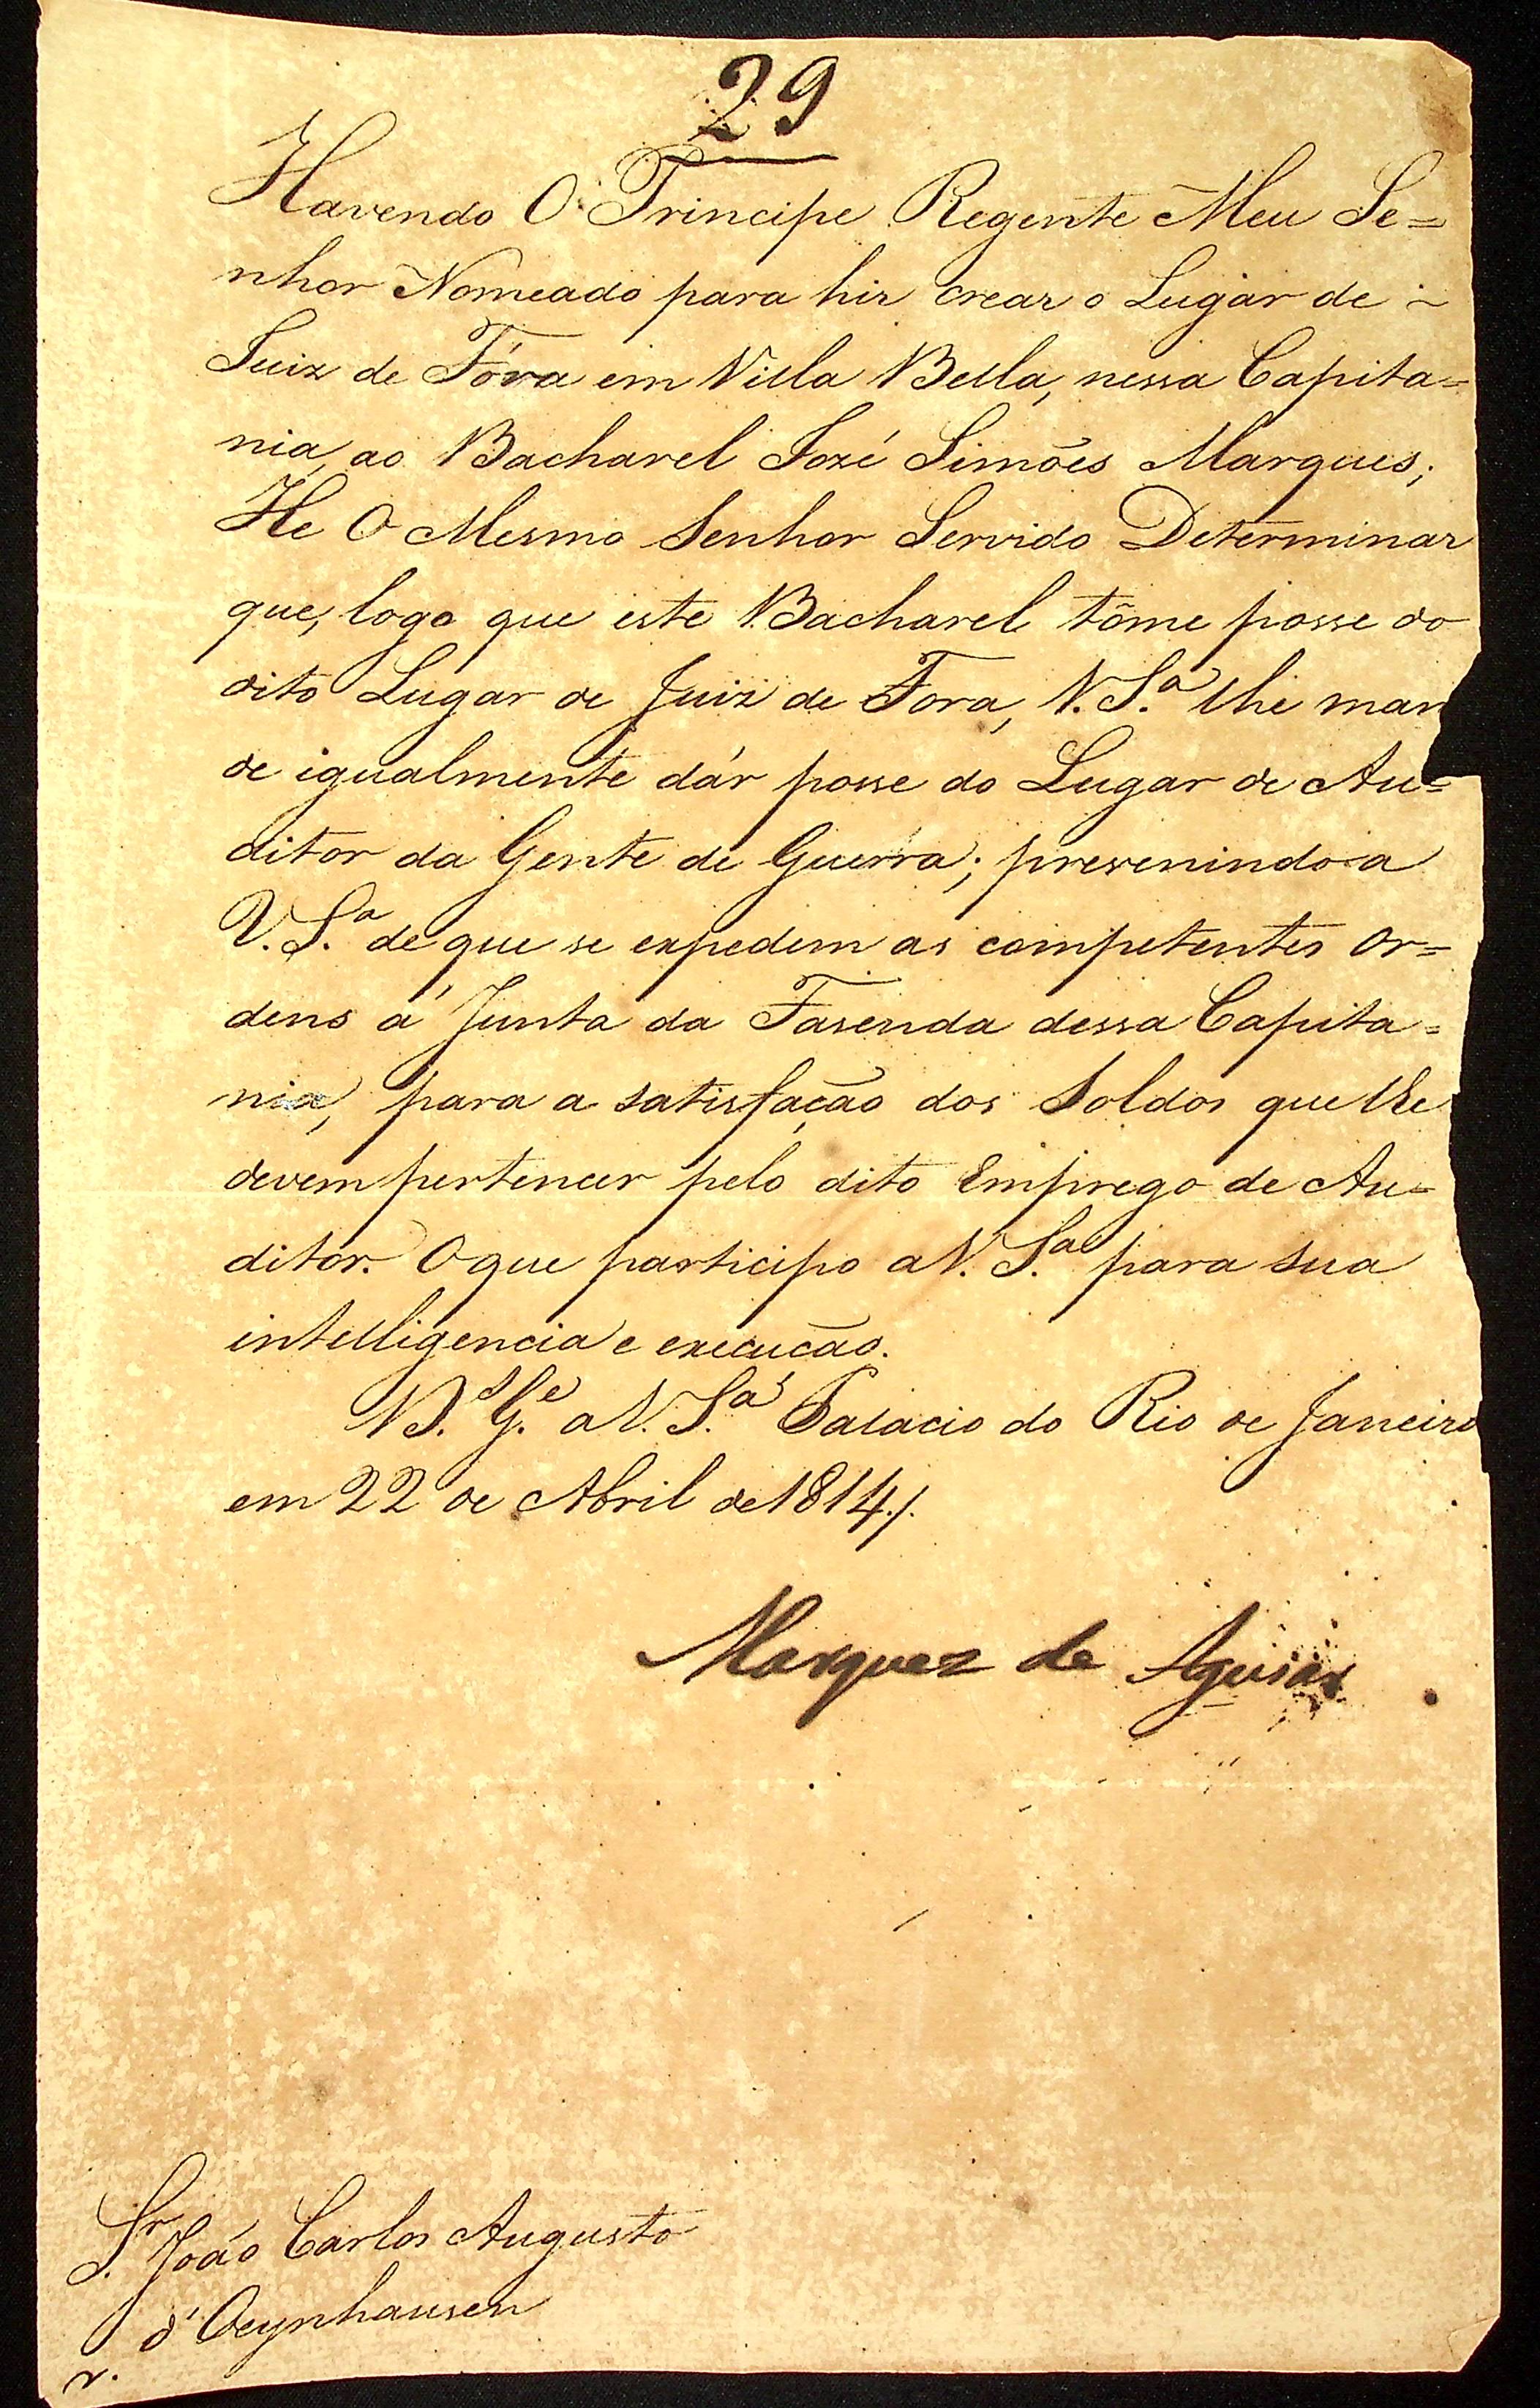 29
Havendo O Principe Regente Meu Se=
nhor Nomeado para hir crear o Lugar de
Juiz de Fóra em Villa Bella, nessa Capita=
nia, ao Bacharel José Simões Marques;
He O Mesmo Senhor Servido Determinar
que, logo que este Bacharel tôme posse do
dito Lugar de Juiz de Fora, V. S.ª lhe man
de igualmente dár posse do Lugar de Au=
ditor da Gente de Guerra; prevenindo a
V. S.ª de que se expedem as competentes Or=
dens á Junta da Fasenda dessa Capita=
nia, para a satisfação dos Soldos que lhe
devem pertencer pelo dito Emprego de Au=
ditor. O que participo a V. S.ª para sua
intelligencia e execucão.
D.ˢ G.ᵉ a V. S.ª Palacio do Rio de Janeiro
em 22 de Abril de 1814./.
Marquez de Aguiar
S.ʳ João Carlos Augusto
d'Oeynhausen